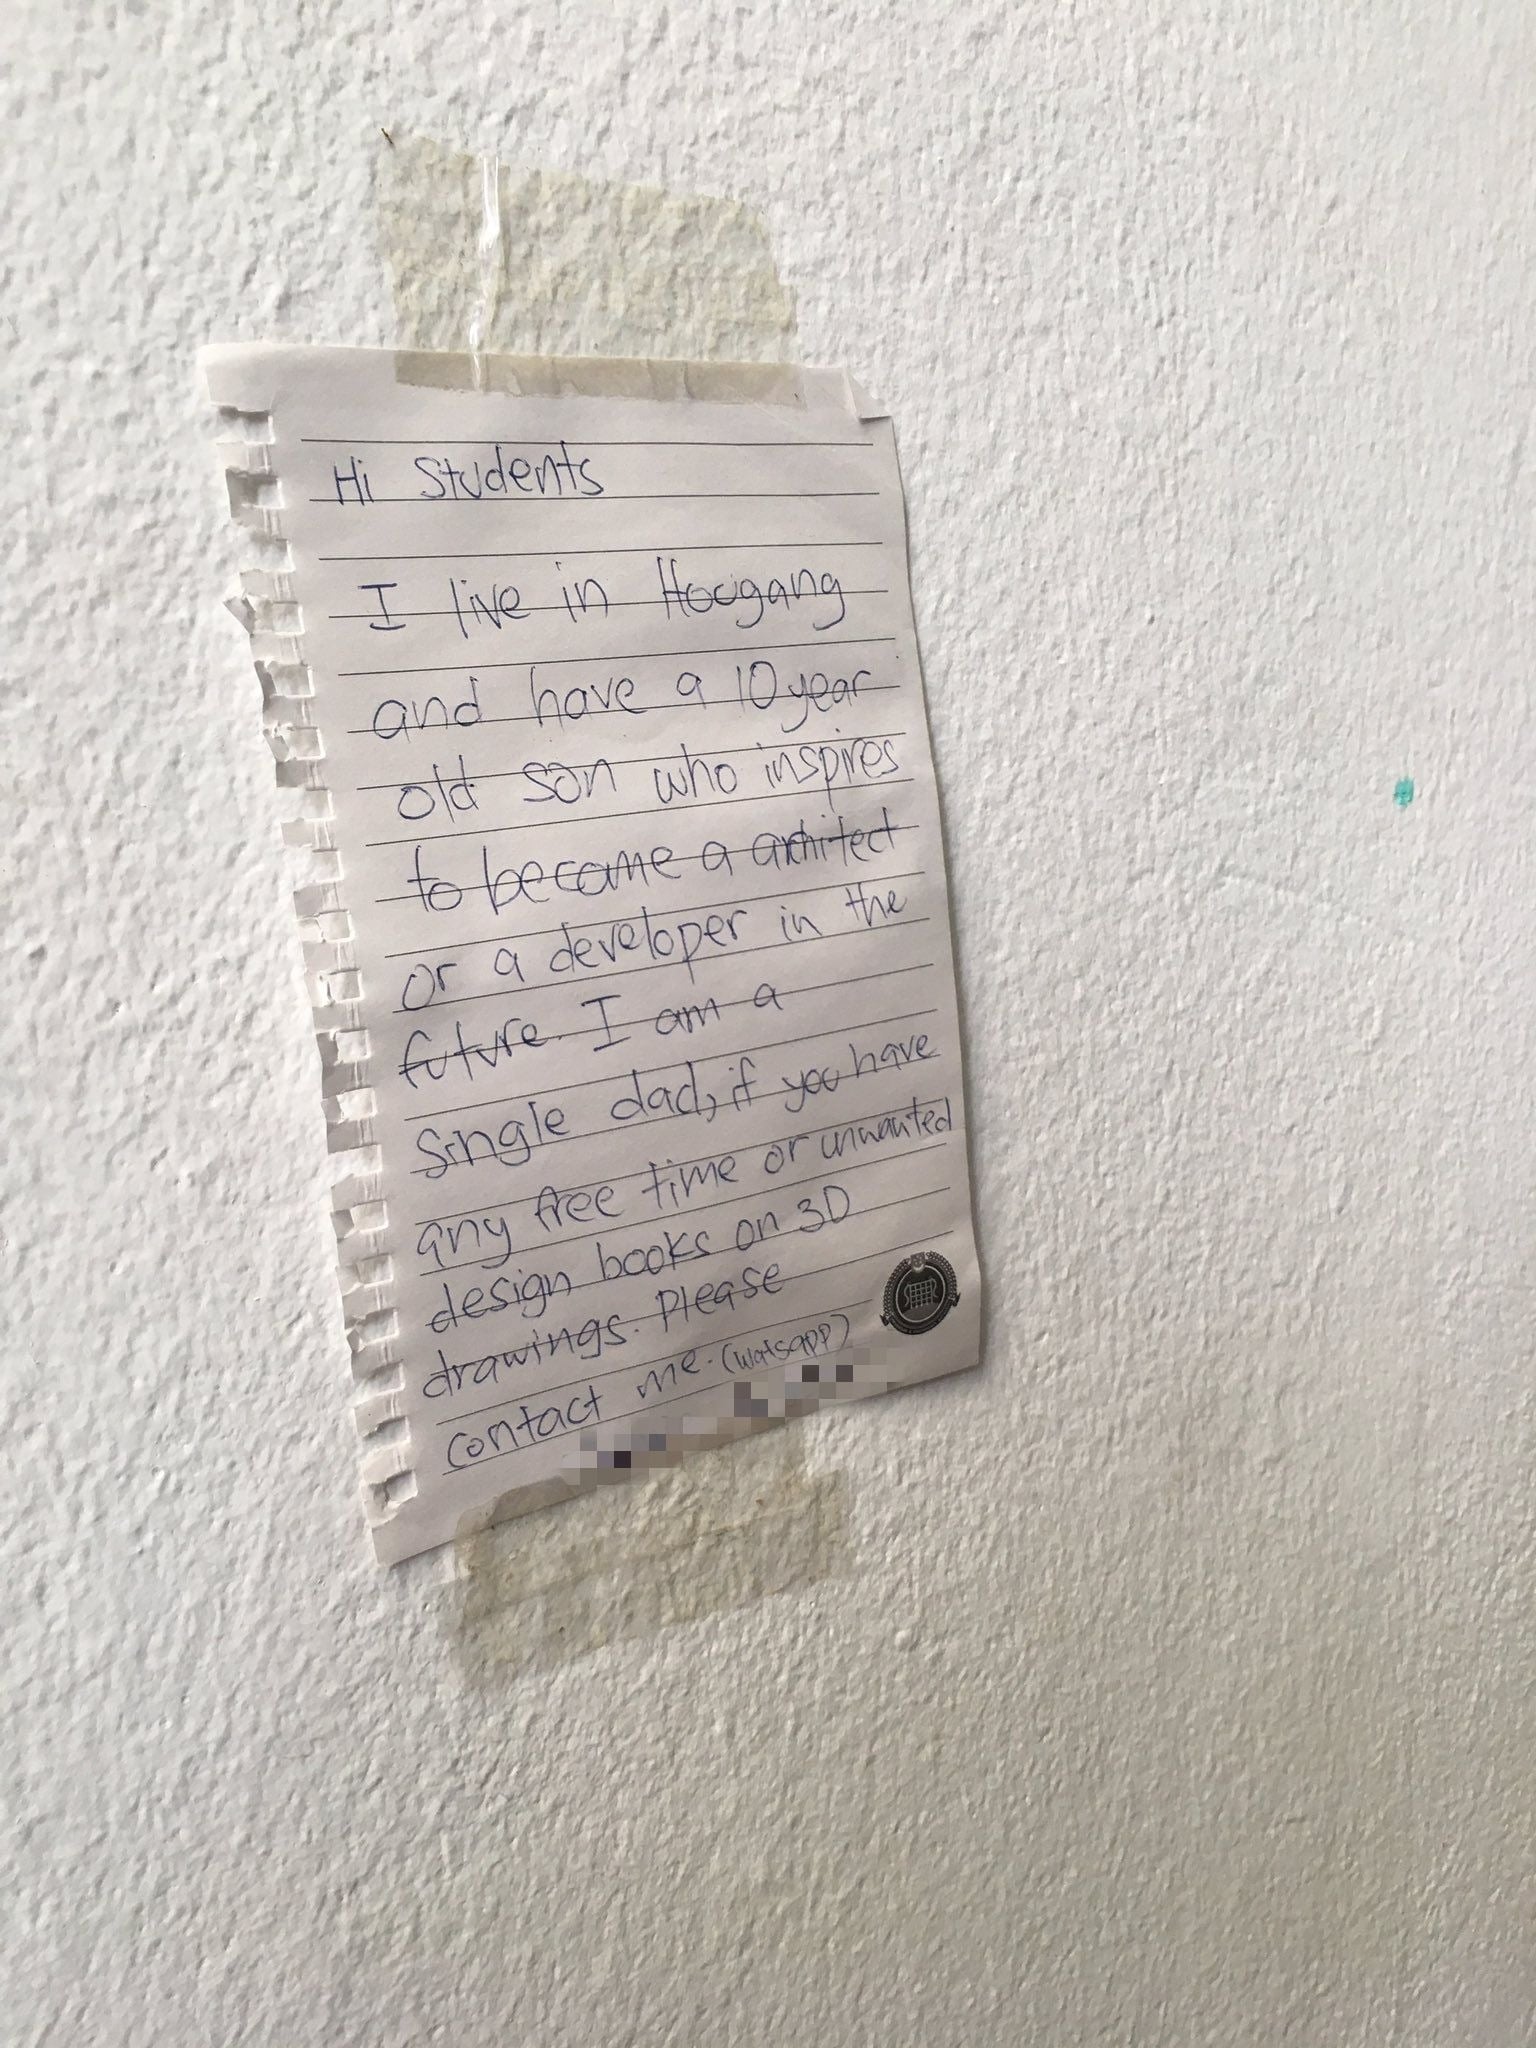 Hi Students
I live in Hougang
and have a 10 year
old son who inspires
to become a architect
or a developer in the
future. I am a
single dad, if you have
any free time or unwanted
design books on 3D
drawings. Please
contact me. (watsapp)